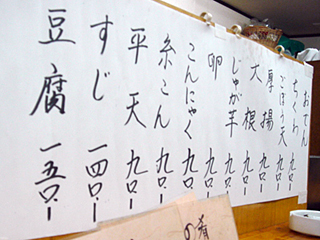 おでん
ちくわ 九〇ー
ごぼう天 九〇ー
厚揚 九〇ー
大根 九〇ー
じゃが芋 九〇ー
卵 九〇ー
こんにゃく 九〇ー
糸こん 九〇ー
平天 九〇ー
すじ 一四〇ー
豆腐 一五〇ー
肴
の